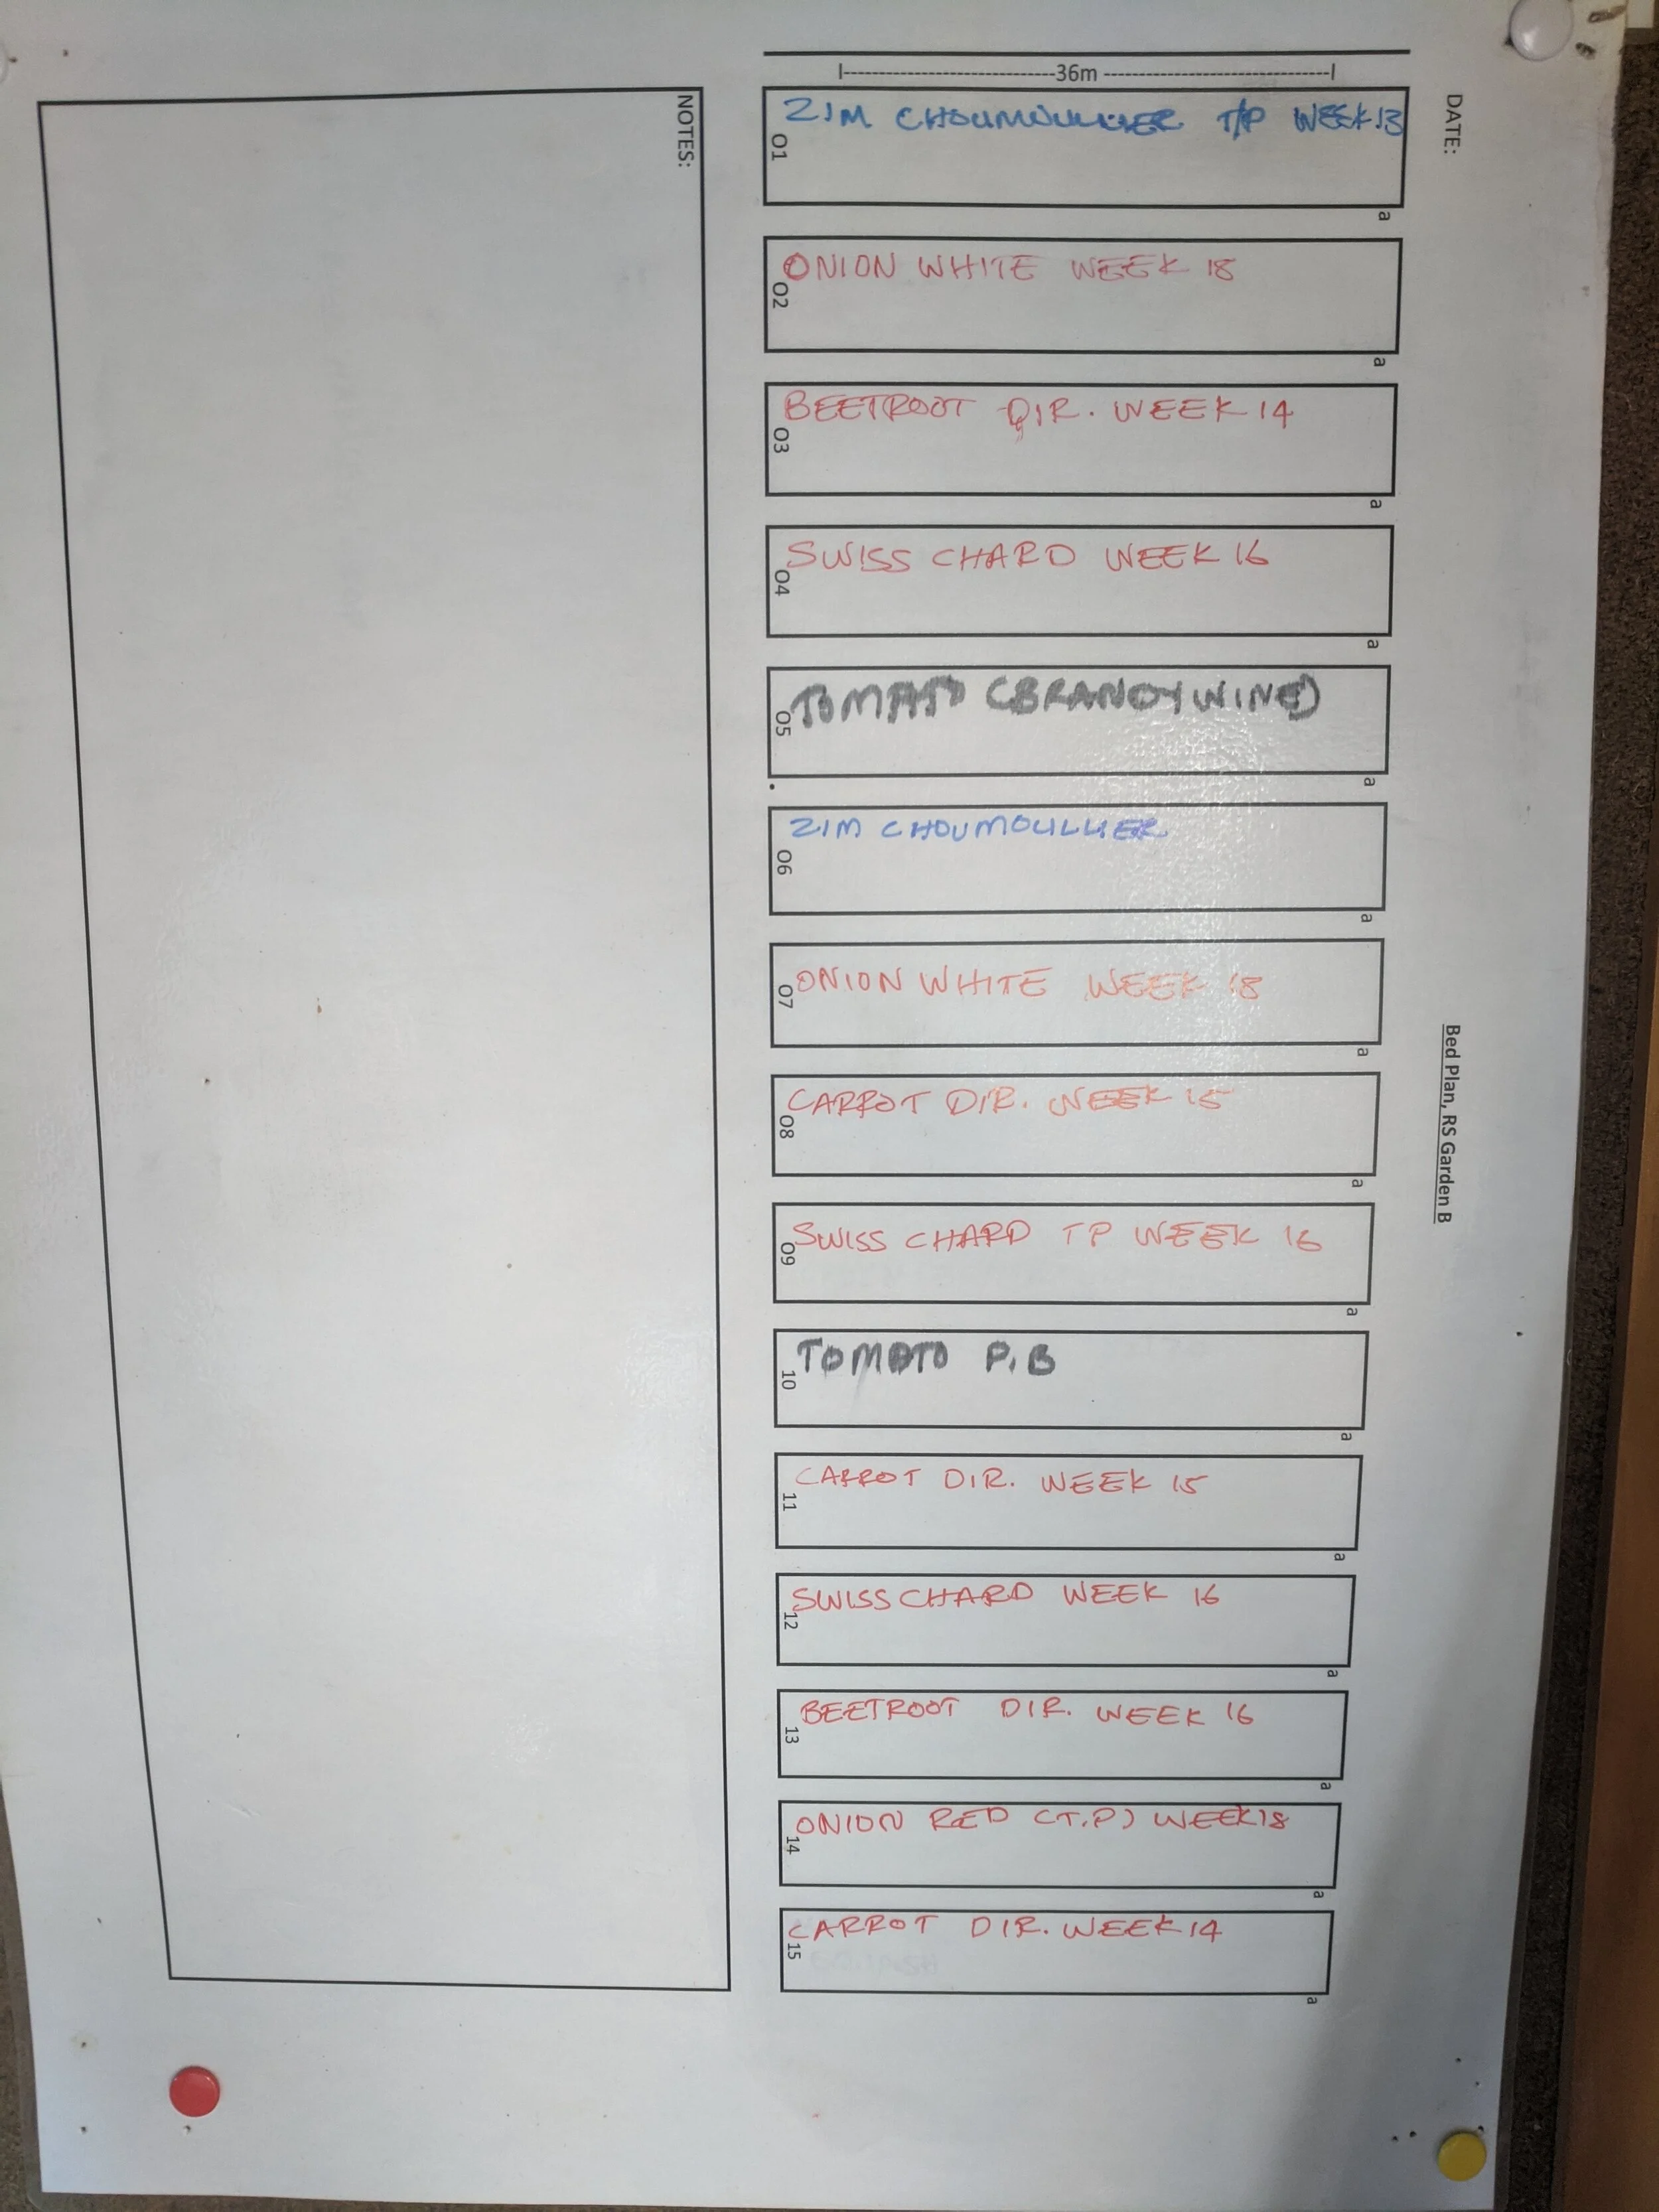 DATE:
Bed Plan, RS Garden B
|-----------------------------36m -----------------------------|
01
ZIM CHOUMOULLIER T/P WEEK 13
a
02
ONION WHITE WEEK 18
a
03
BEETROOT DIR. WEEK 14
a
04
SWISS CHARD WEEK 16
a
05
TOMATO (BRANDYWINE)
a
06
ZIM CHOUMOULLIER
a
07
ONION WHITE WEEK 18
a
08
CARROT DIR. WEEK 15
a
09
SWISS CHARD TP WEEK 16
a
10
TOMATO P.B
a
11
CARROT DIR. WEEK 15
a
12
SWISS CHARD WEEK 16
a
13
BEETROOT DIR. WEEK 16
a
14
ONION RED (T.P) WEEK 18
a
15
CARROT DIR. WEEK 14
a
NOTES: